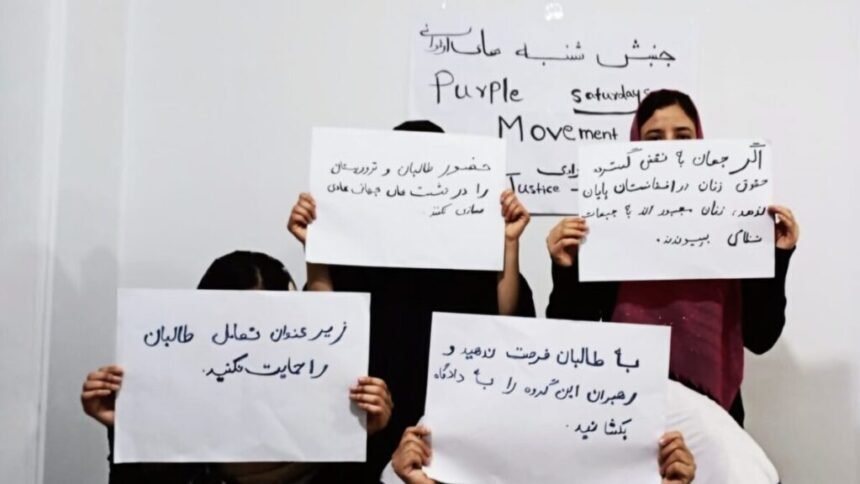 جنبش شنبه های ارغوانی
Purple Saturdays
Movement
Justice -
حضور طالبان و تروریستان
را در نشست های جهانی عادی
سازی نکنید.
اگر جهان به نقض گسترده
حقوق زنان در افغانستان پایان
ندهد، زنان مجبور اند به جبهات
نظامی بپیوندند.
زیر عنوان تعامل طالبان
را حمایت نکنید.
به طالبان فرصت ندهید و
رهبران این گروه را به دادگاه
بکشانید.